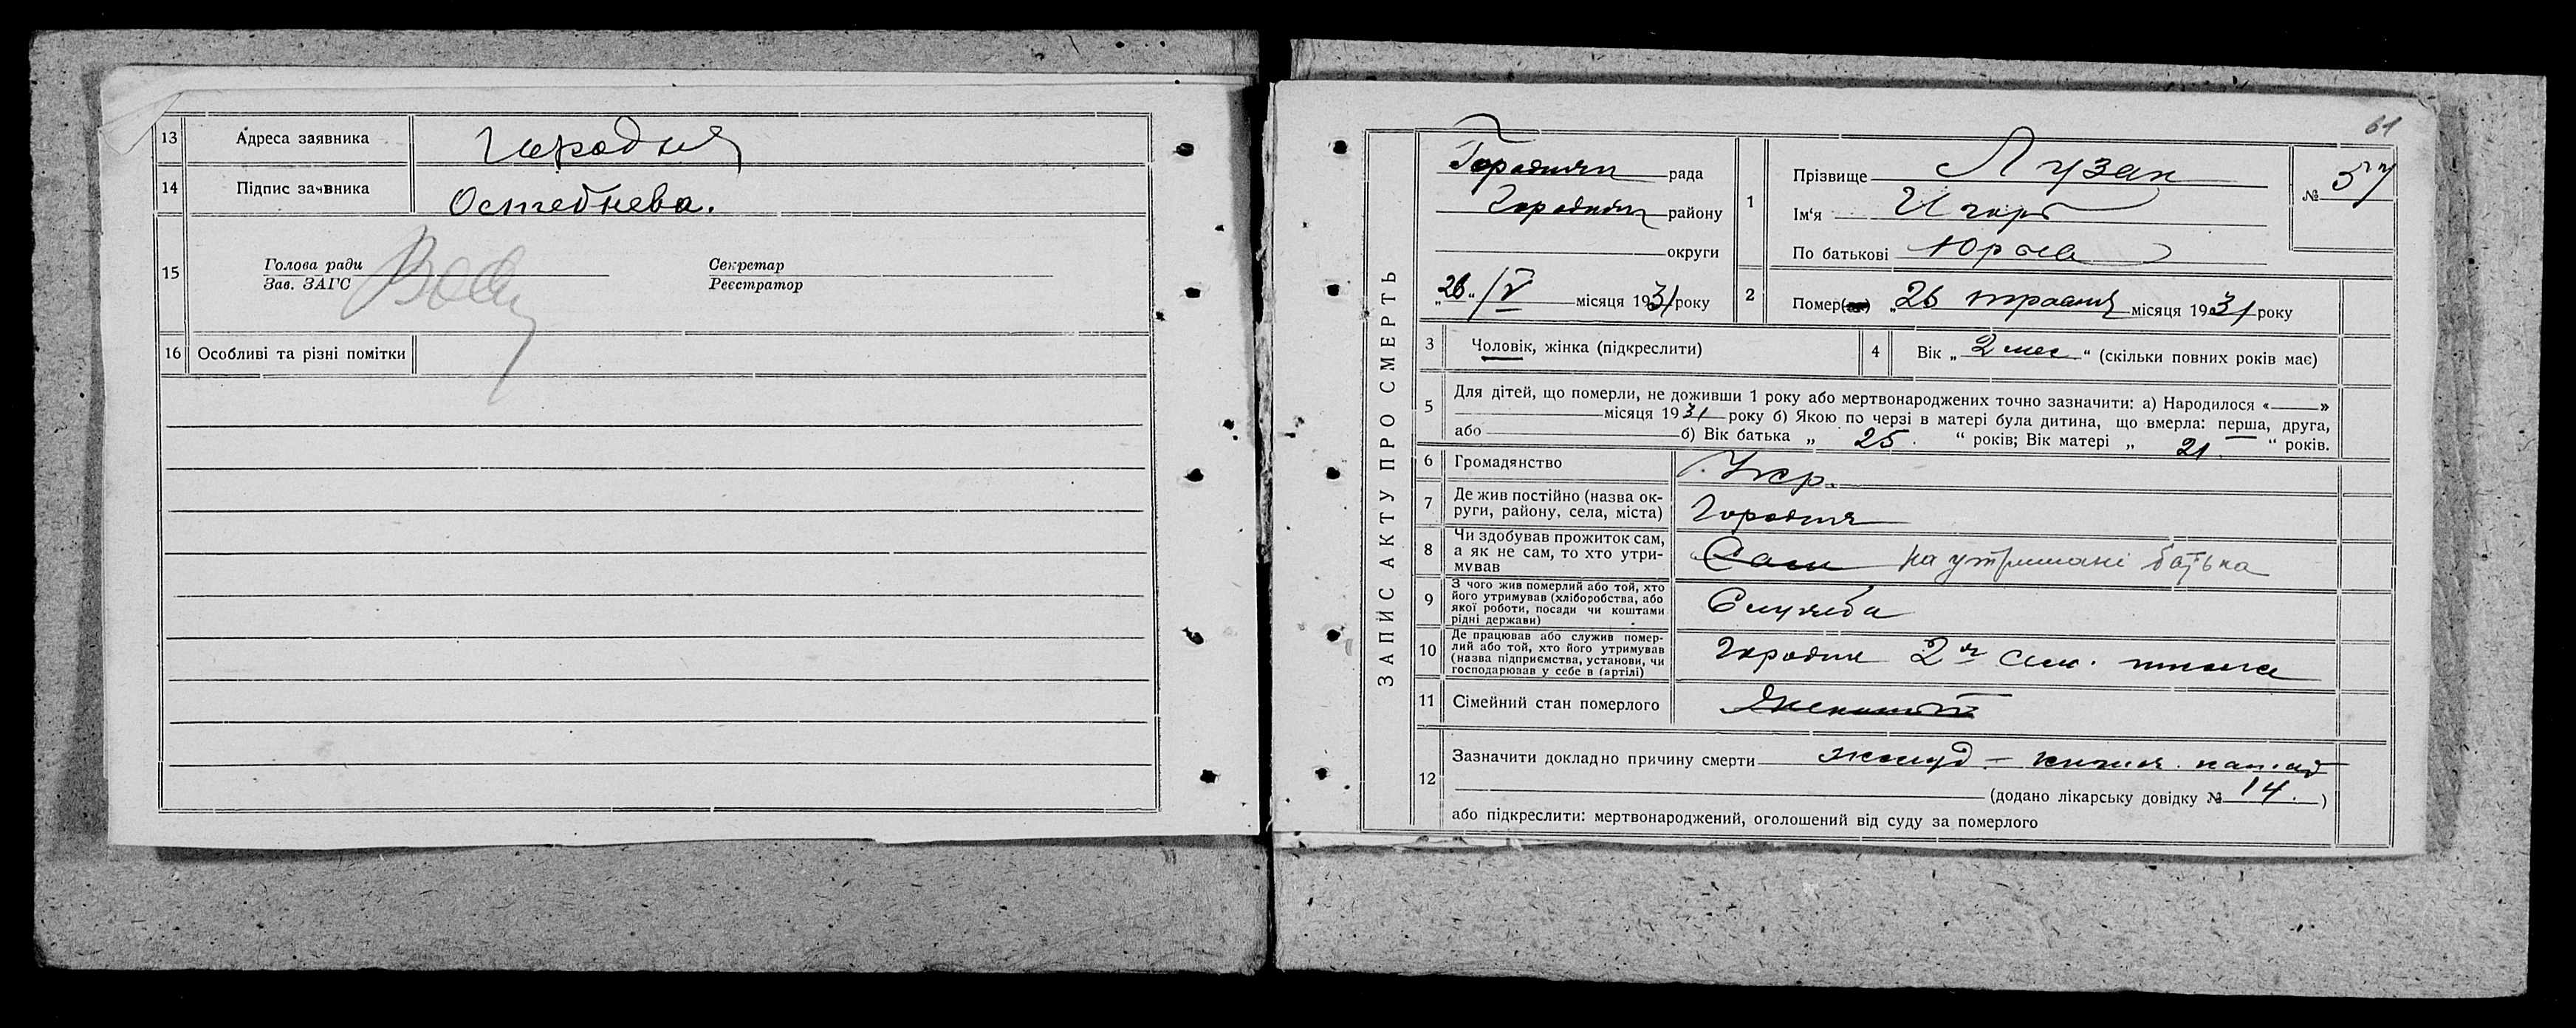 13 Адреса заявника Городня
14 Підпис заявника Остебнева.
15 Голова ради
Зав. ЗАГС
Секретар
Реєстратор
16 Особливі та різні помітки
61
ЗАПИС АКТУ ПРО СМЕРТЬ
Городнян рада
Городнян району
округи
„26“ /V місяця 1931 року
1 Прізвище Лузан
Ім'я Игорь
По батькові Юрьев
№ 57
2 Помер(ла) „26 травня місяця 1931 року
3 Чоловік, жінка (підкреслити)
4 Вік „ 2 мес “ (скільки повних років має)
5 Для дітей, що померли, не доживши 1 року або мертвонароджених точно зазначити: а) Народилося « »
місяця 1931 року б) Якою по черзі в матері була дитина, що вмерла: перша, друга,
або б) Вік батька „ 25. “ років; Вік матері „ 21. “ років.
6 Громадянство Усср.
7 Де жив постійно (назва ок-
руги, району, села, міста) Городня
8 Чи здобував прожиток сам,
а як не сам, то хто утри-
мував Сам на утримані батька
9 З чого жив померлий або той, хто
його утримував (хліборобства, або
якої роботи, посади чи коштами
рідні держави) Служба
10 Де працював або служив помер-
лий або той, хто його утримував
(назва підприємства, установи, чи
господарював у себе в (артілі) Городня 2я
11 Сімейний стан померлого
12 Зазначити докладно причину смерти желуд – кишеч. катар
(додано лікарську довідку № 14. )
або підкреслити: мертвонароджений, оголошений від суду за померлого